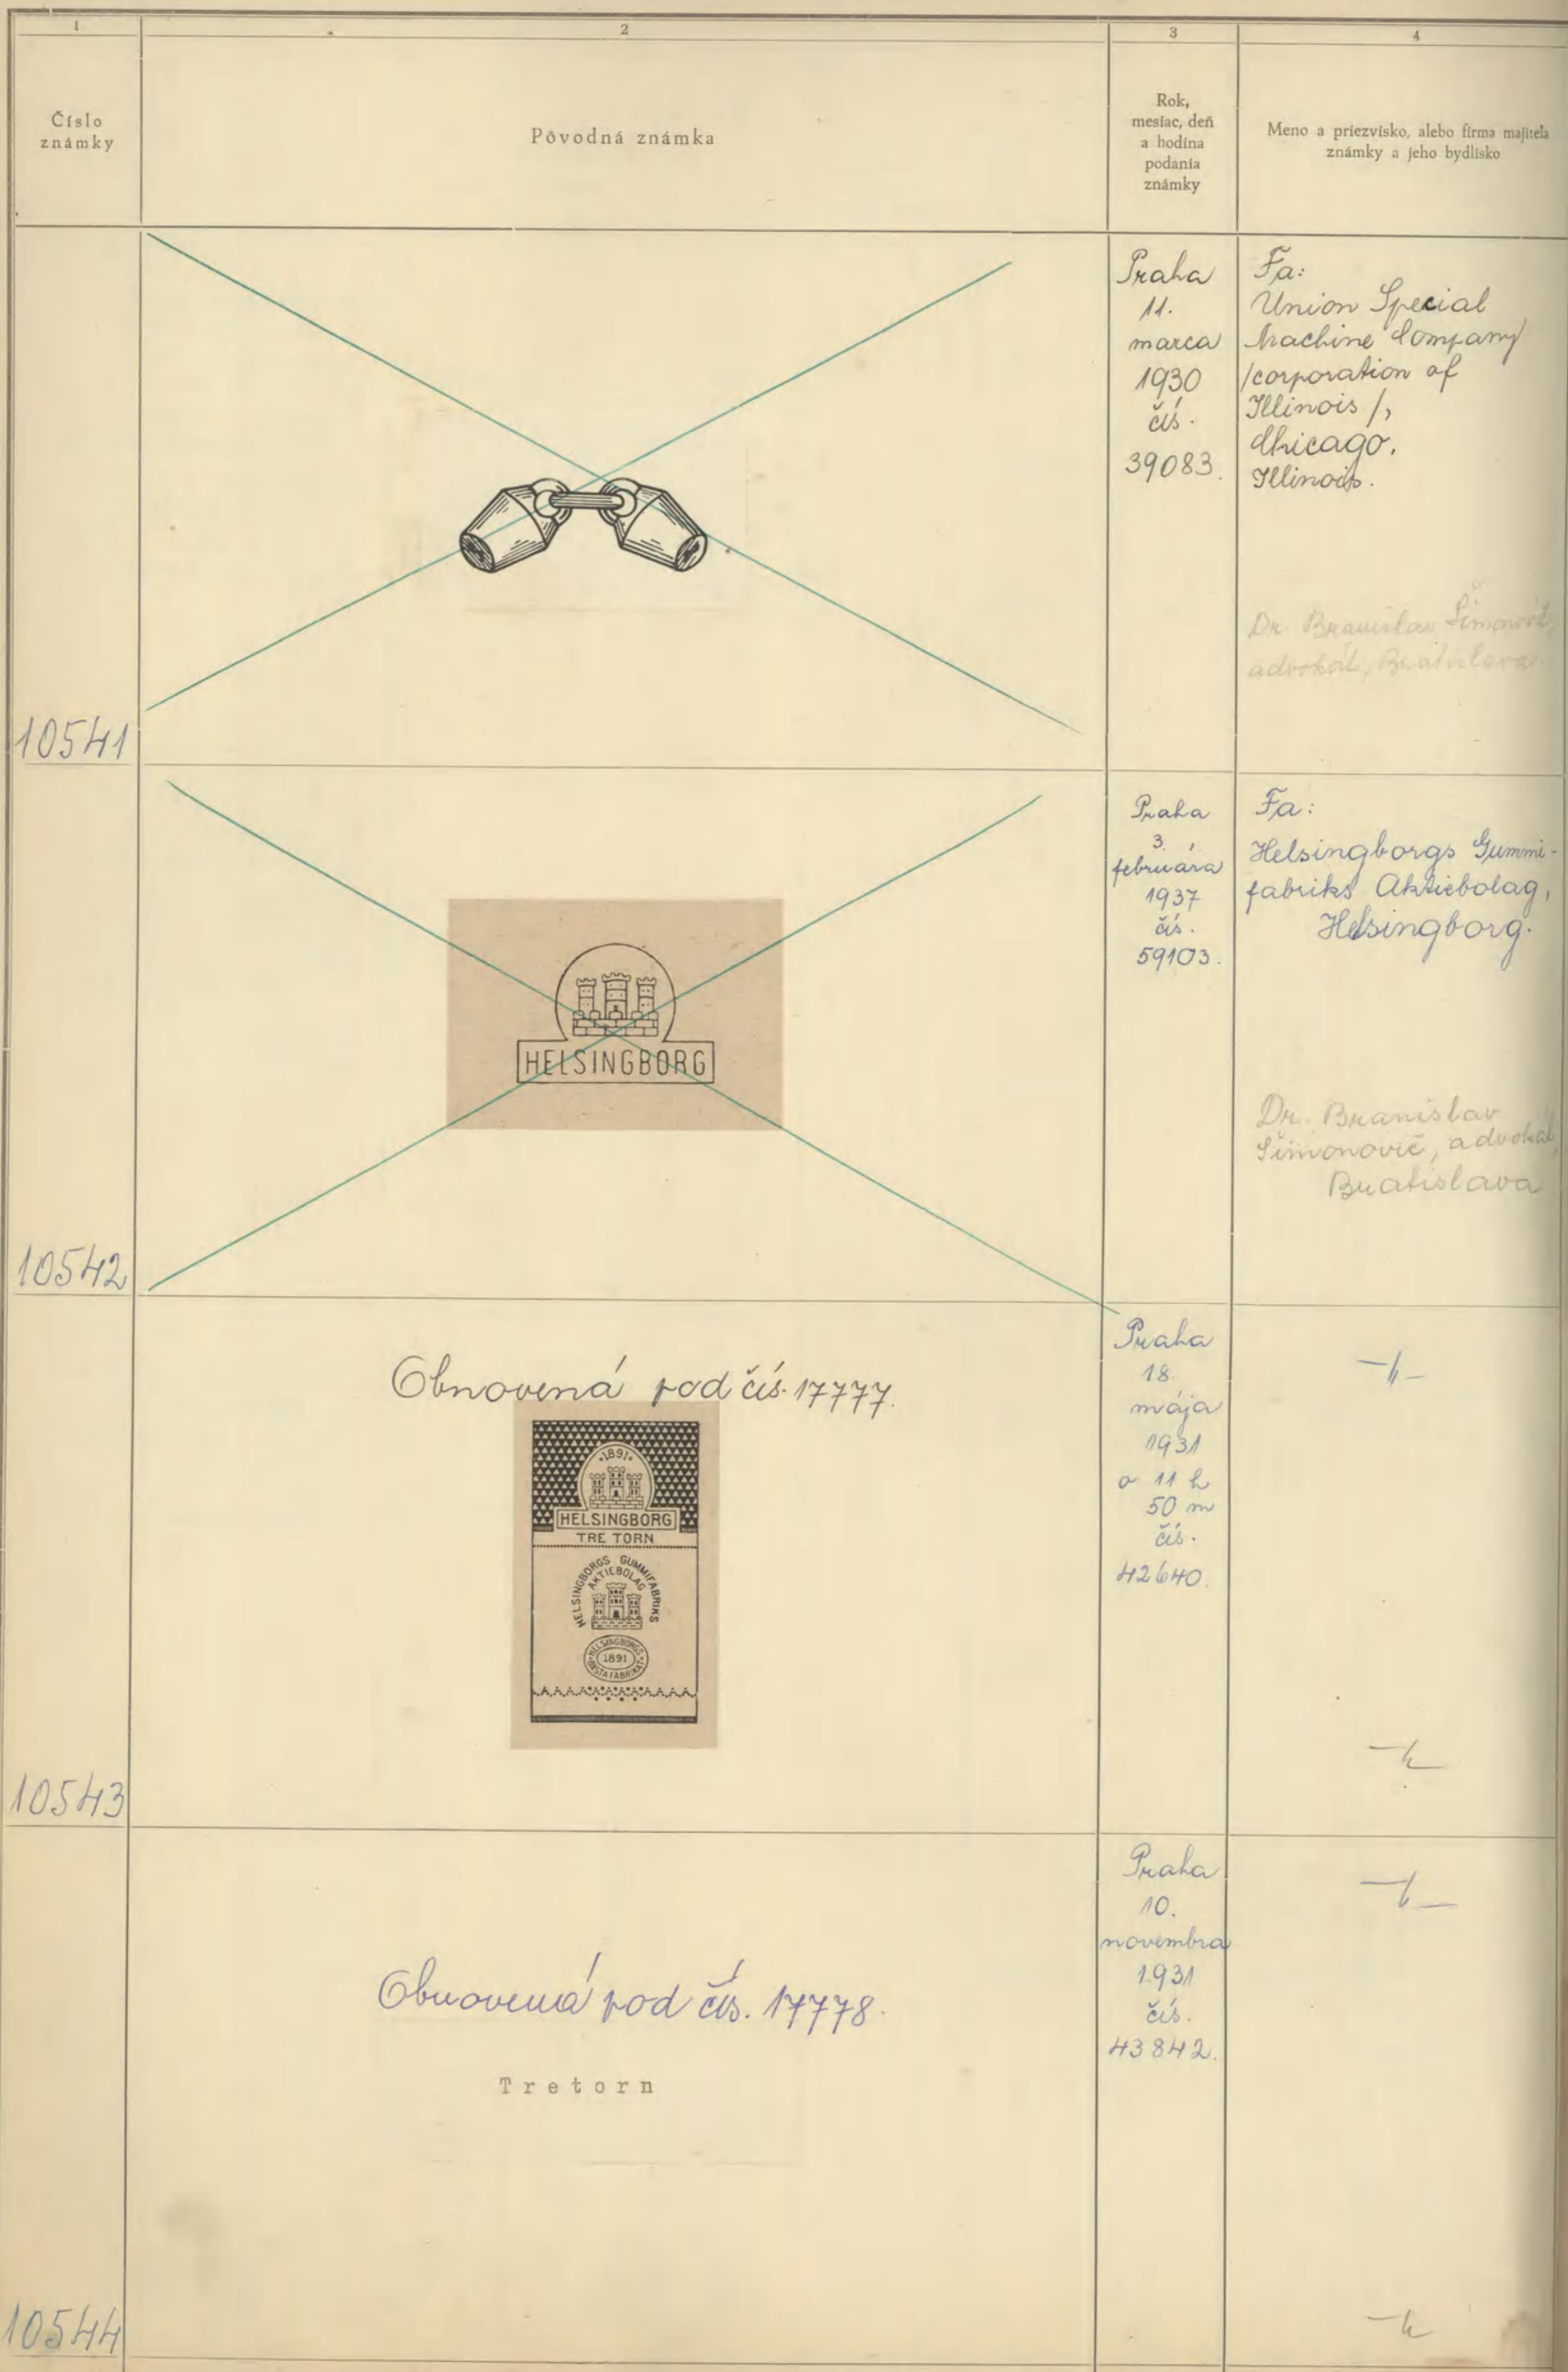 1
2
3
4
Číslo
známky
Pôvodná známka
Rok,
mesiac, deň
a hodina
podania
známky
Meno a priezvisko, alebo firma majiteľa
známky a jeho bydlisko
10541
Praha
11.
marca
1930
čís.
39083.
Fa:
Union Special
Machine Company
/corporation of
Illinois/,
Chicago.
Illinois.
Dr. Branislav Šimonovič,
advokát, Bratislava.
10542
HELSINGBORG
Praha
3.
februára
1937
čís.
59103.
Fa:
Helsingborgs Gummi-
fabriks Aktiebolag,
Helsingborg.
Dr. Branislav
Šimonovič, advokát,
Bratislava
10543
Obnovená pod čís. 17777.
1891
HELSINGBORG
TRE TORN
HELSINGBORGS GUMMIFABRIKS
AKTIEBOLAG
HELSINGBORGS
1891
BÄSTA FABRIKAT
Praha
18.
mája
1931
o 11 h
50 m
čís.
42640.
10544
Obnovená pod čís. 17778.
Tretorn
Praha
10.
novembra
1931
čís.
43842.